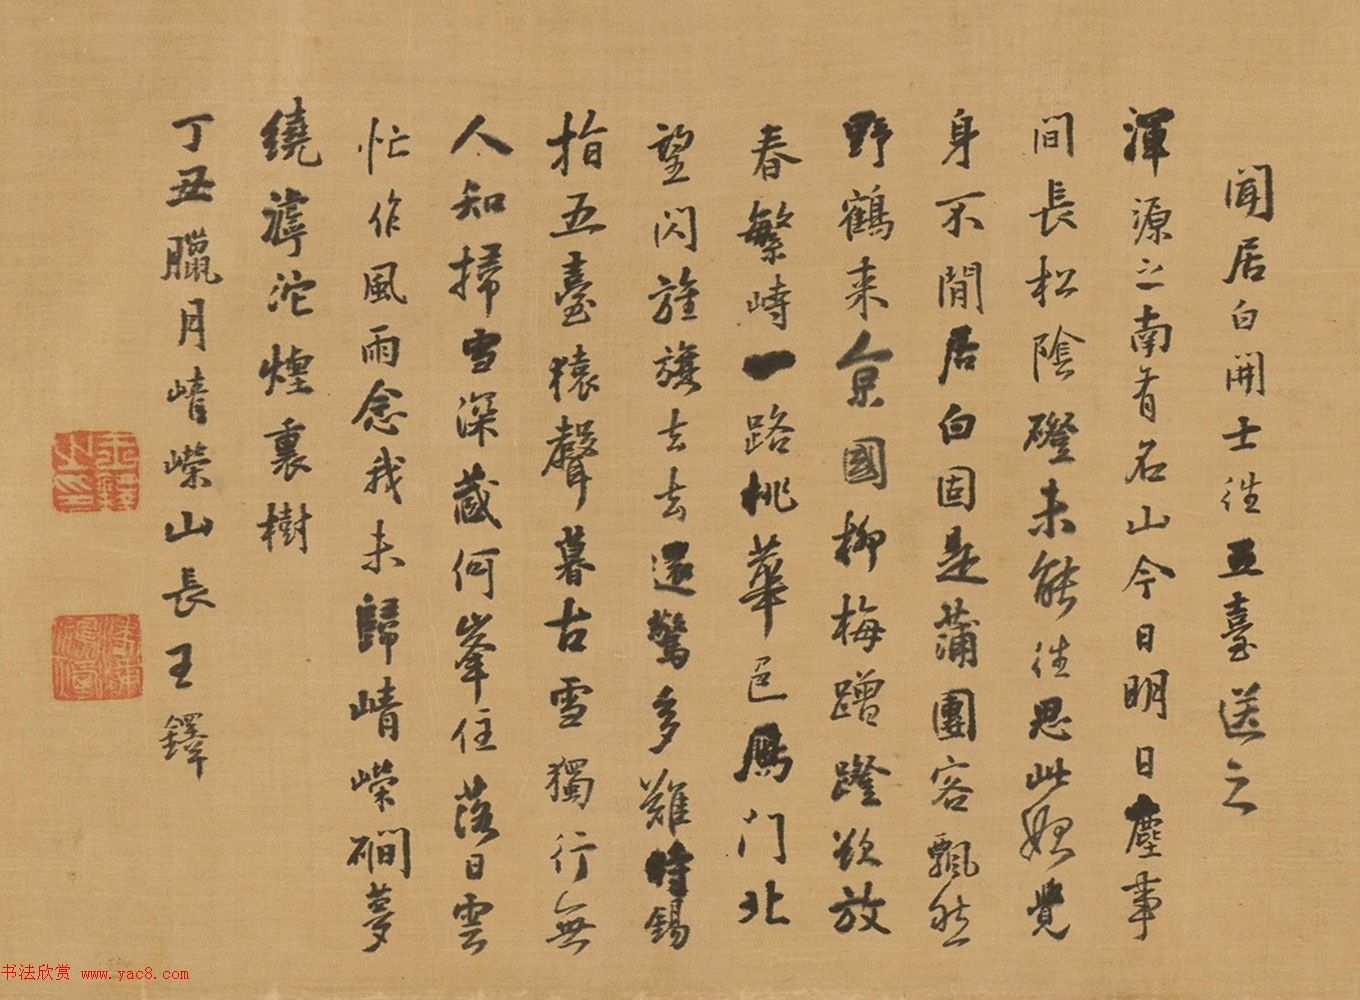 聞居白開士往五臺送之
渾源之南有名山今日明日塵事
間長松陰磴未能往思此始覺
身不閒居白固是蒲團客飄然
野鶴來京國柳梅蹭蹬欲放
春繁峙一路桃華邑鴈门北
望閃旌旗去去還驚多難時錫
指五臺猿聲暮古雪獨行無
人知掃雪深藏何峯住落日雲
忙作風雨念我未歸崝嶸磵夢
繞滹沱煙裏樹
丁丑臘月崝嶸山長王鐸
王鐸之印
书法欣赏 www.yac8.com